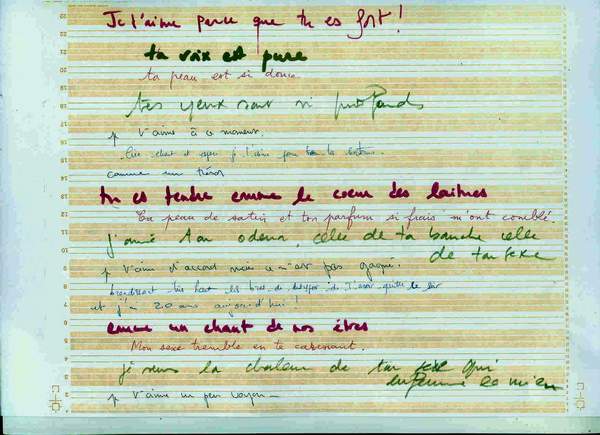 Je t'aime parce que tu es fort !
ta voix est pure
ta peau est si douce
tes yeux sont si profonds
je t'aime à ce moment.
comme un trésor
tu es tendre comme le coeur des laitues
Ta peau de satin et ton parfum si frais m'ont comblé.
j'aime ton odeur, celle de ta bouche celle
de ton sexe
je t'aime d'accord mais ce n'est pas gagné.
et j'ai 20 ans aujourd'hui !
comme un chant de nos êtres
Mon sexe tremble en te caressant.
je sens la chaleur de ton sexe qui
enferme le mien
je t'aime un peu voyou